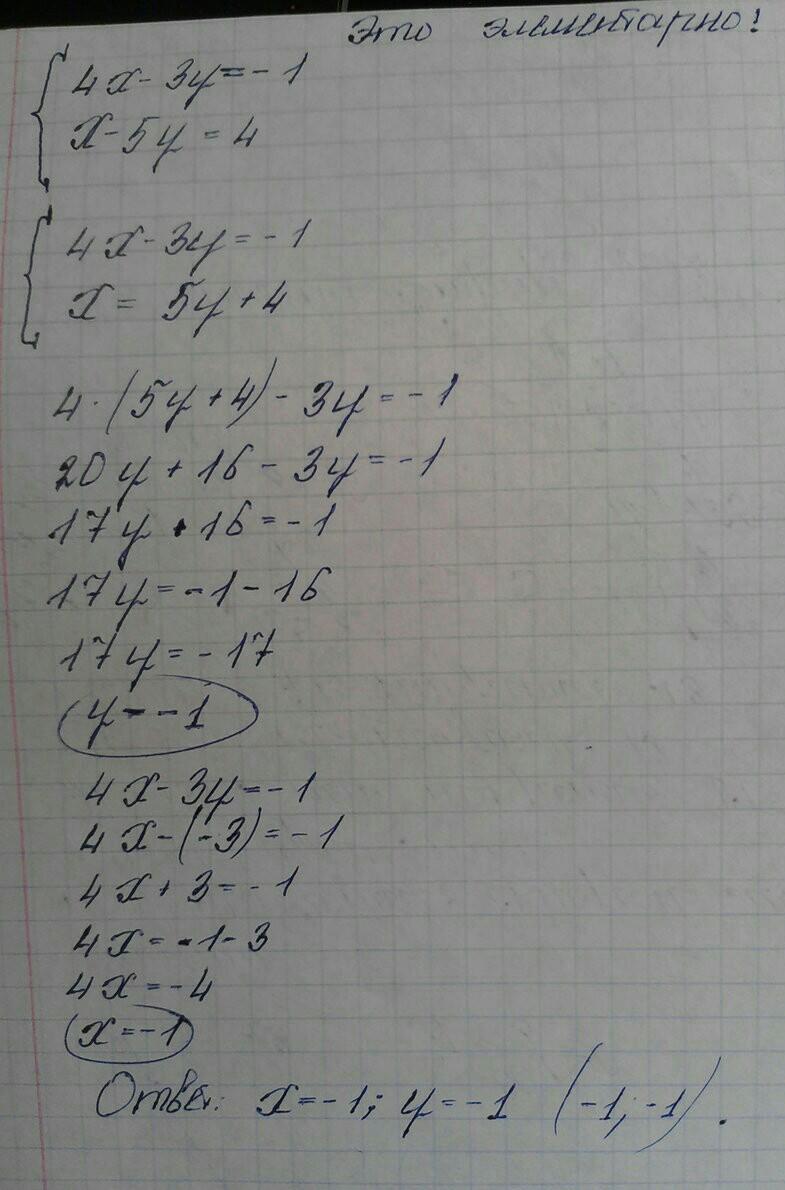 Это элементарно!
4x-3y=-1
x-5y=4
4x-3y=-1
x=5y+4
4·(5y+4)-3y=-1
20y+16-3y=-1
17y+16=-1
17y=-1-16
17y=-17
y=-1
4x-3y=-1
4x-(-3)=-1
4x+3=-1
4x=-1-3
4x=-4
x=-1
Ответ: x=-1; y=-1 (-1;-1).